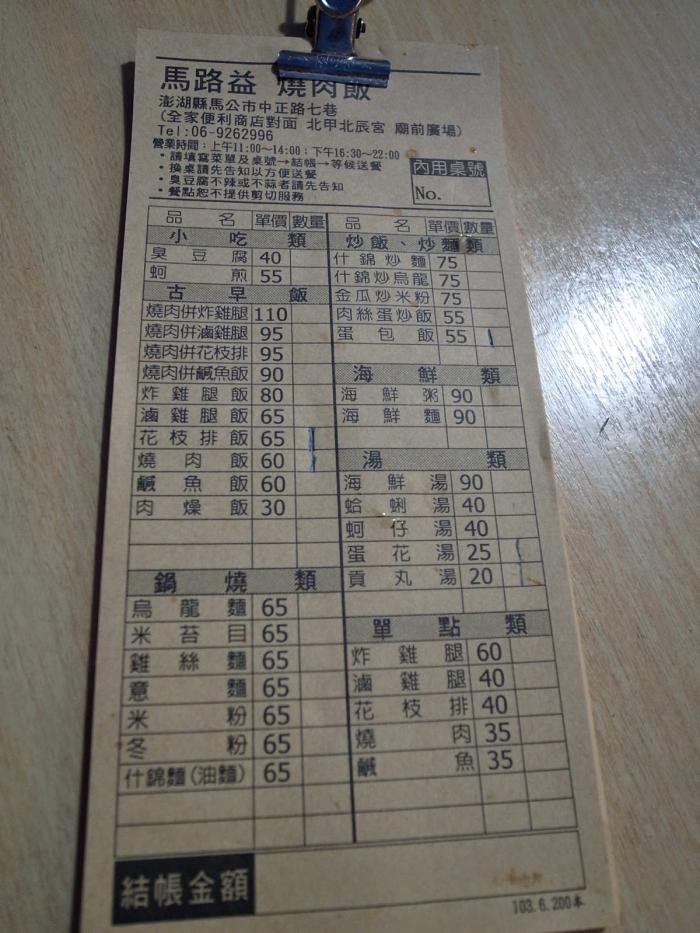 馬路益 燒肉飯
澎湖縣馬公市中正路七巷
(全家便利商店對面 北甲北辰宮 廟前廣場)
Tel:06-9262996
營業時間：上午11:00~14:00；下午16:30~22:00
・請填寫菜單及桌號→結帳→等候送餐
・換桌請先告知以方便送餐
・臭豆腐不辣或不蒜者請先告知
・餐點恕不提供剪切服務
內用桌號
No.
品名 單價 數量
小吃類
臭豆腐 40
蚵煎 55
古早飯
燒肉併炸雞腿 110
燒肉併滷雞腿 95
燒肉併花枝排 95
燒肉併鹹魚飯 90
炸雞腿飯 80
滷雞腿飯 65
花枝排飯 65
燒肉飯 60
鹹魚飯 60
肉燥飯 30
鍋燒類
烏龍麵 65
米苔目 65
雞絲麵 65
意麵 65
米粉 65
冬粉 65
什錦麵(油麵) 65
品名 單價 數量
炒飯、炒麵類
什錦炒麵 75
什錦炒烏龍 75
金瓜炒米粉 75
肉絲蛋炒飯 55
蛋包飯 55
海鮮類
海鮮粥 90
海鮮麵 90
湯類
海鮮湯 90
蛤蜊湯 40
蚵仔湯 40
蛋花湯 25
貢丸湯 20
單點類
炸雞腿 60
滷雞腿 40
花枝排 40
燒肉 35
鹹魚 35
結帳金額
103.6.200本